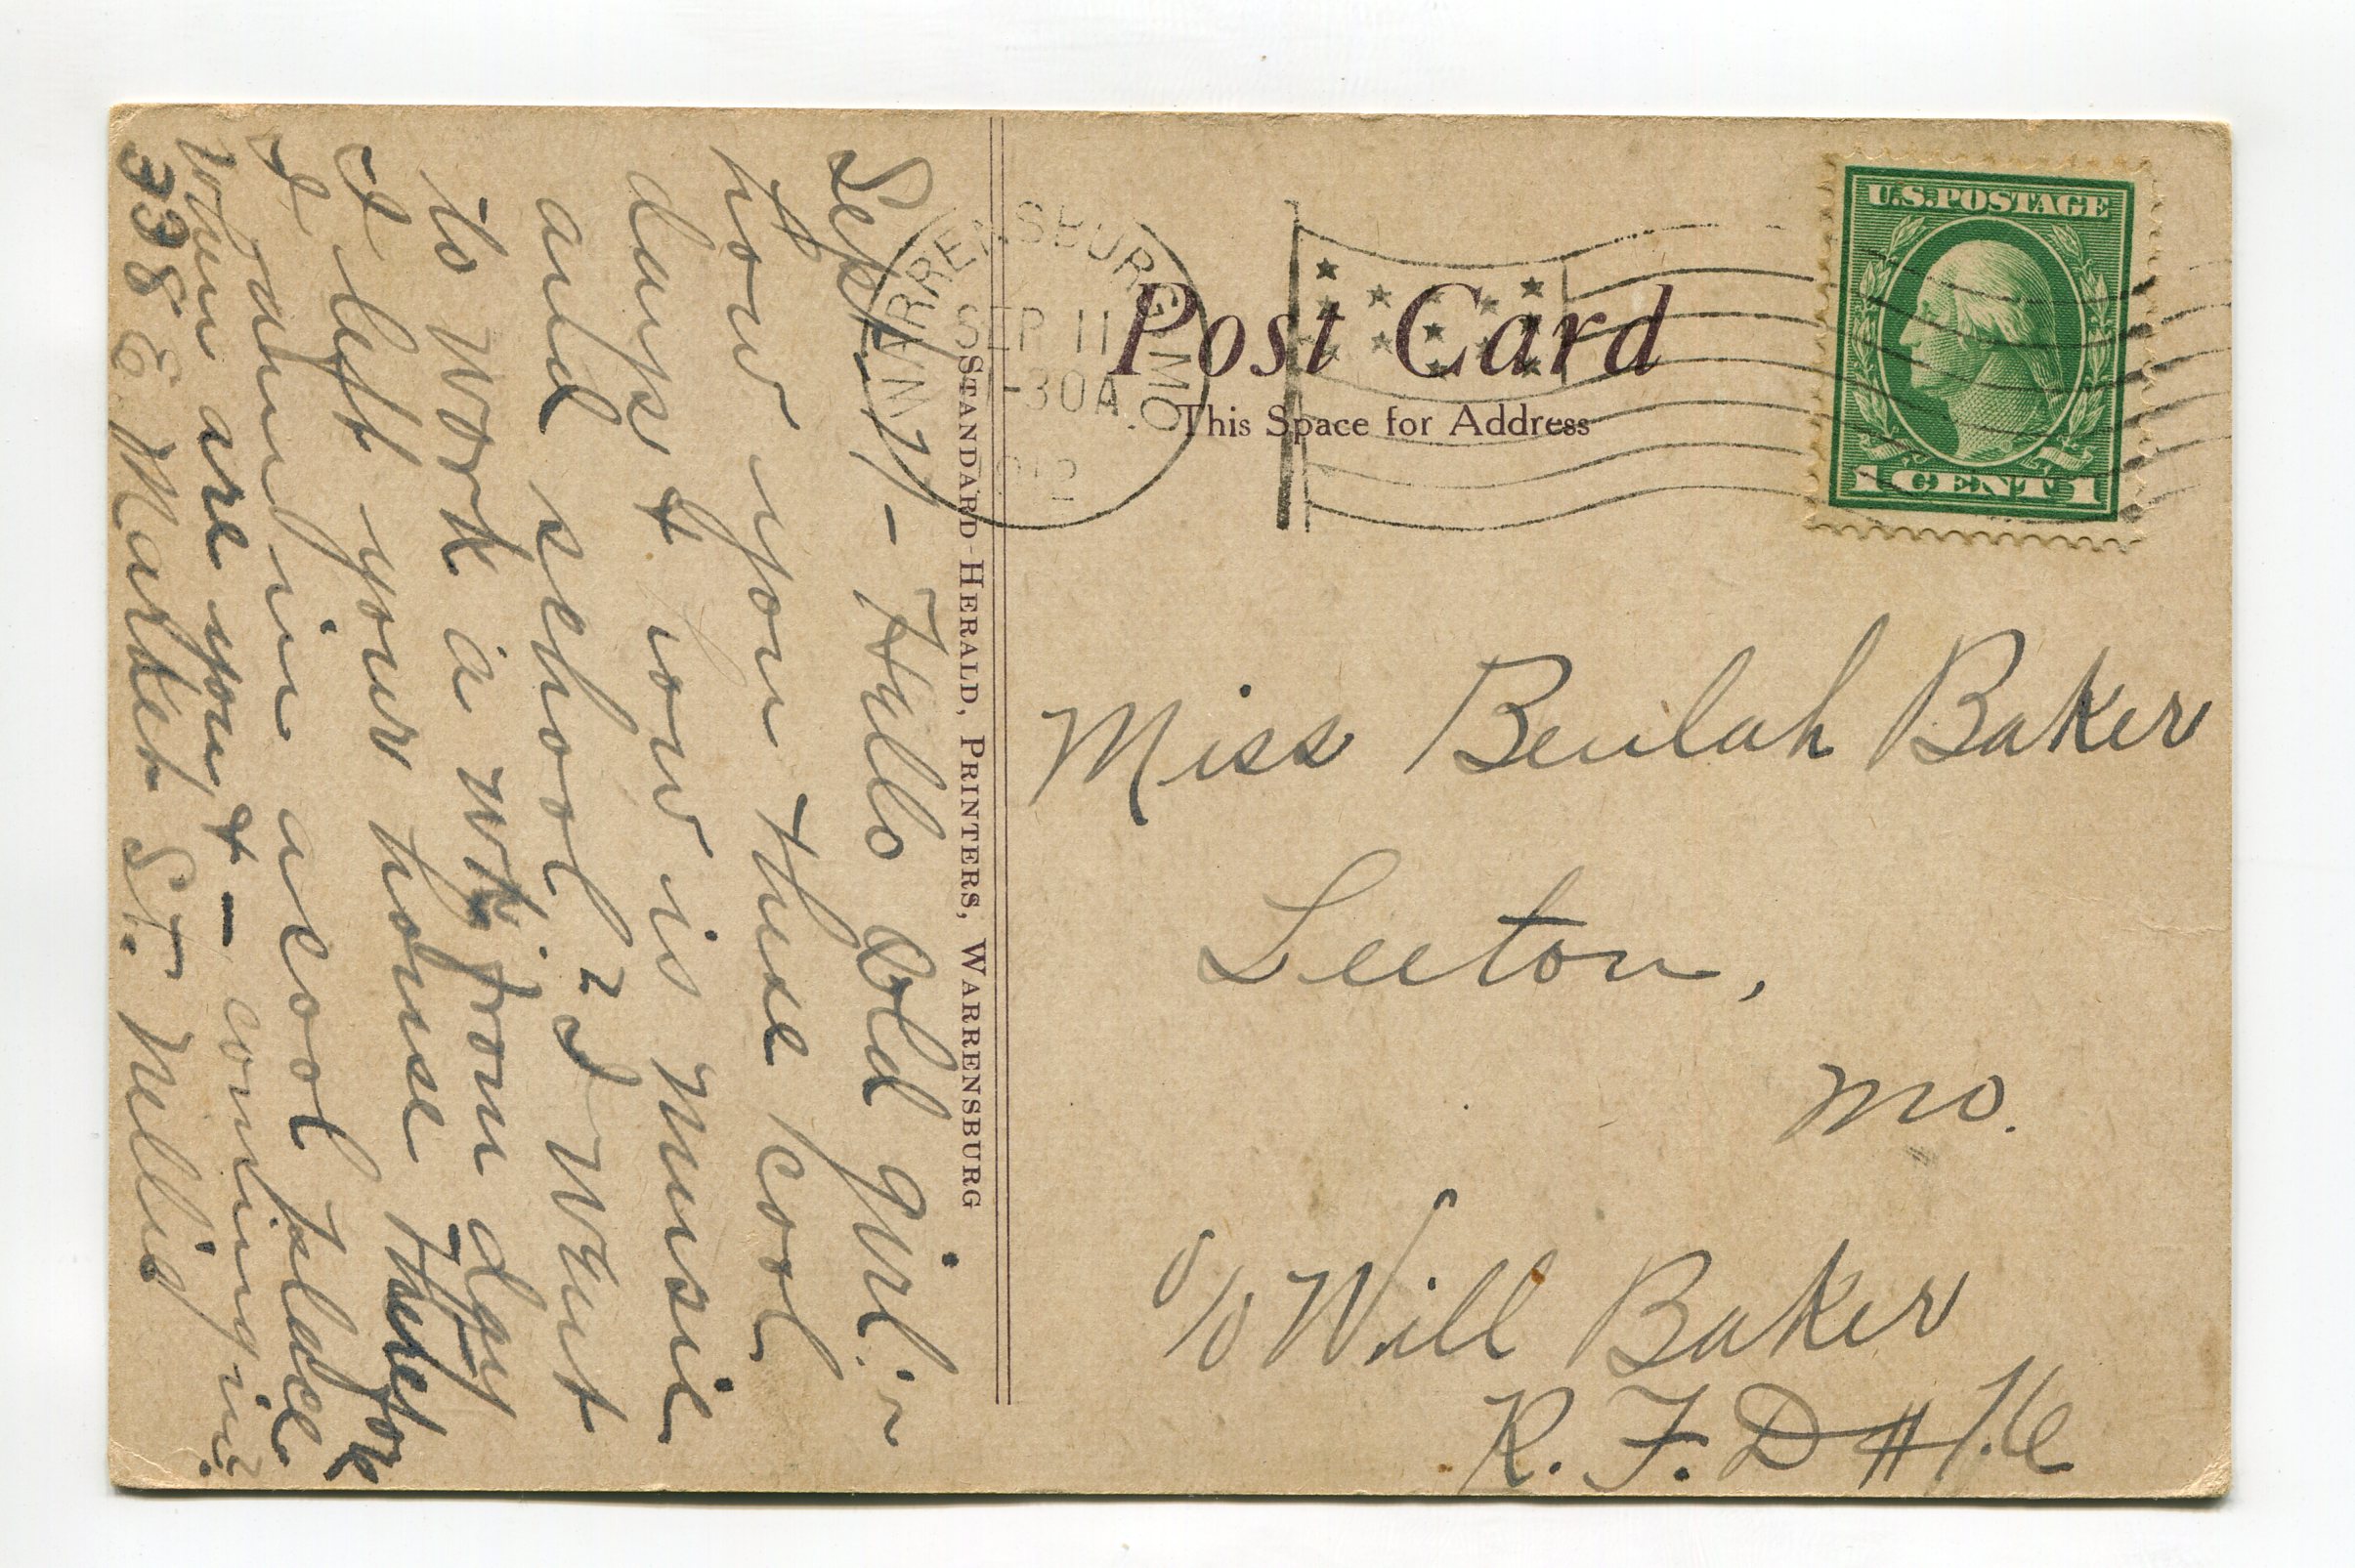 Sept 11 - Hello Old girl:-
how you these cool
days & how is music
and school? I went
to work a wk. from day
I left your house Therefore
I am in a cool place
when are you & - coming in?
338 E Market St. Nellie
STANDARD-HERALD, PRINTERS, WARRENSBURG
WARRENSBURG, MO.
SEP 11
-30A
1912
Post Card
This Space for Address
U.S. POSTAGE
1 CENT 1
Miss Beulah Baker
Leeton,
Mo.
c/o Will Baker
R. F. D # 16